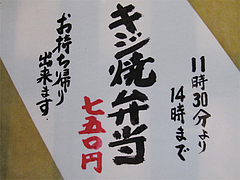 11時30分より
14時まで
キジ焼弁当
七五〇円
お持ち帰り
出来ます